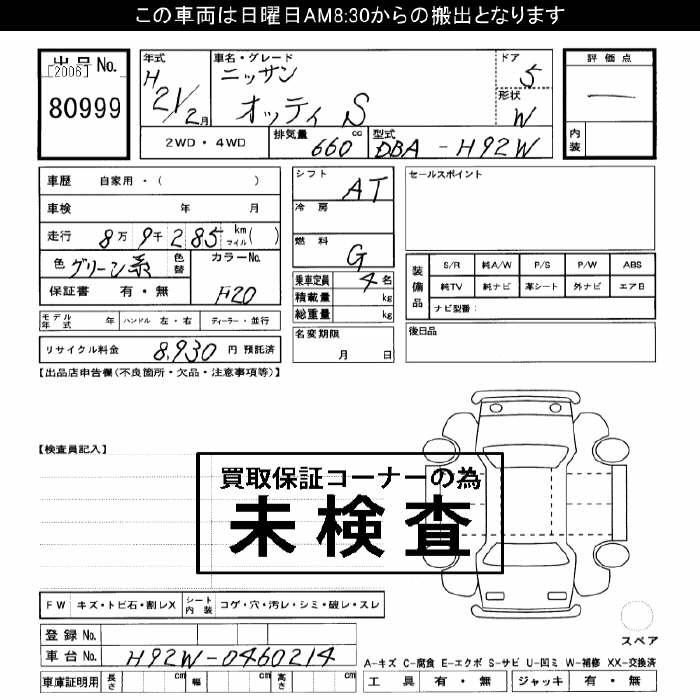 この車両は日曜日AM8:30からの搬出となります
出品No.
[2006]
80999
年式
H21/2月
車名・グレード
ニッサン
オッティ S
ドア
5
形状
W
評価点
―
内装
2WD・4WD
排気量 660 cc
型式 DBA-H92W
車歴 自家用・( )
車検 年 月
走行 8万9千285 km マイル( )
色 グリーン系 色替 カラーNo.
H20
保証書 有・無
モデル年式 年 ハンドル 左・右 ディーラー・並行
リサイクル料金 8,930円 預託済
シフト AT
冷房
燃料 G
乗車定員 4名
積載量 kg
総重量 kg
名変期限
月 日
セールスポイント
装備品
S/R 純A/W P/S P/W ABS
純TV 純ナビ 革シート 外ナビ エアB
ナビ型番:
後日品
【出品店申告欄(不良箇所・欠品・注意事項等)】
【検査員記入】
買取保証コーナーの為
未検査
FW キズ・トビ石・割レX シート内装 コゲ・穴・汚レ・シミ・破レ・スレ
スペア
登録No.
車台No. H92W-0460214
車庫証明用 長さ cm 幅 cm 高さ cm
A-キズ C-腐食 E-エクボ S-サビ U-凹ミ W-補修 XX-交換済
工具 有・無 ジャッキ 有・無